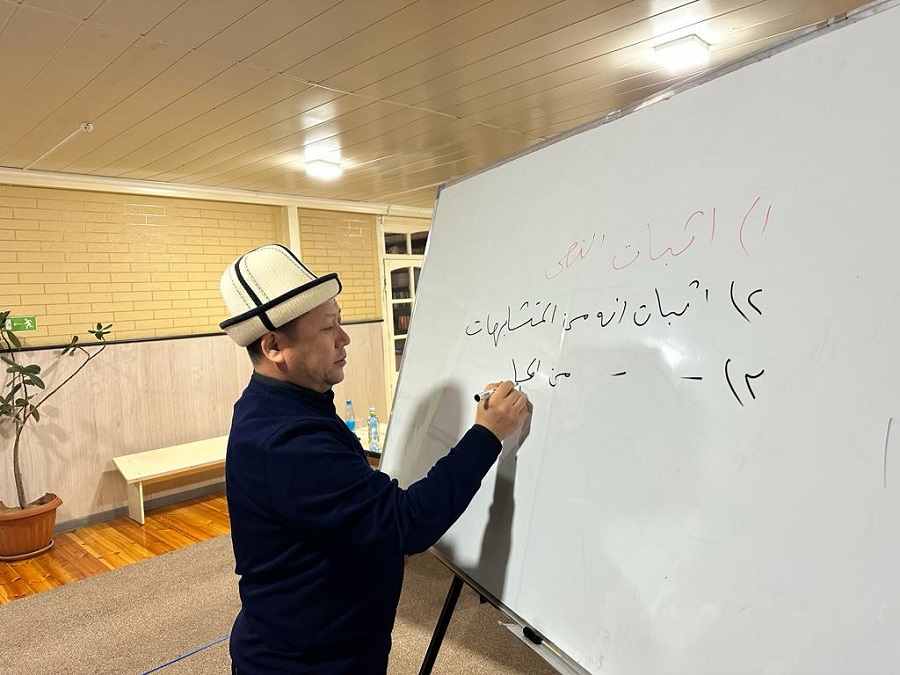 ١) اثبات النص
٢) اثبات انه من المتشابهات
٣) - - من